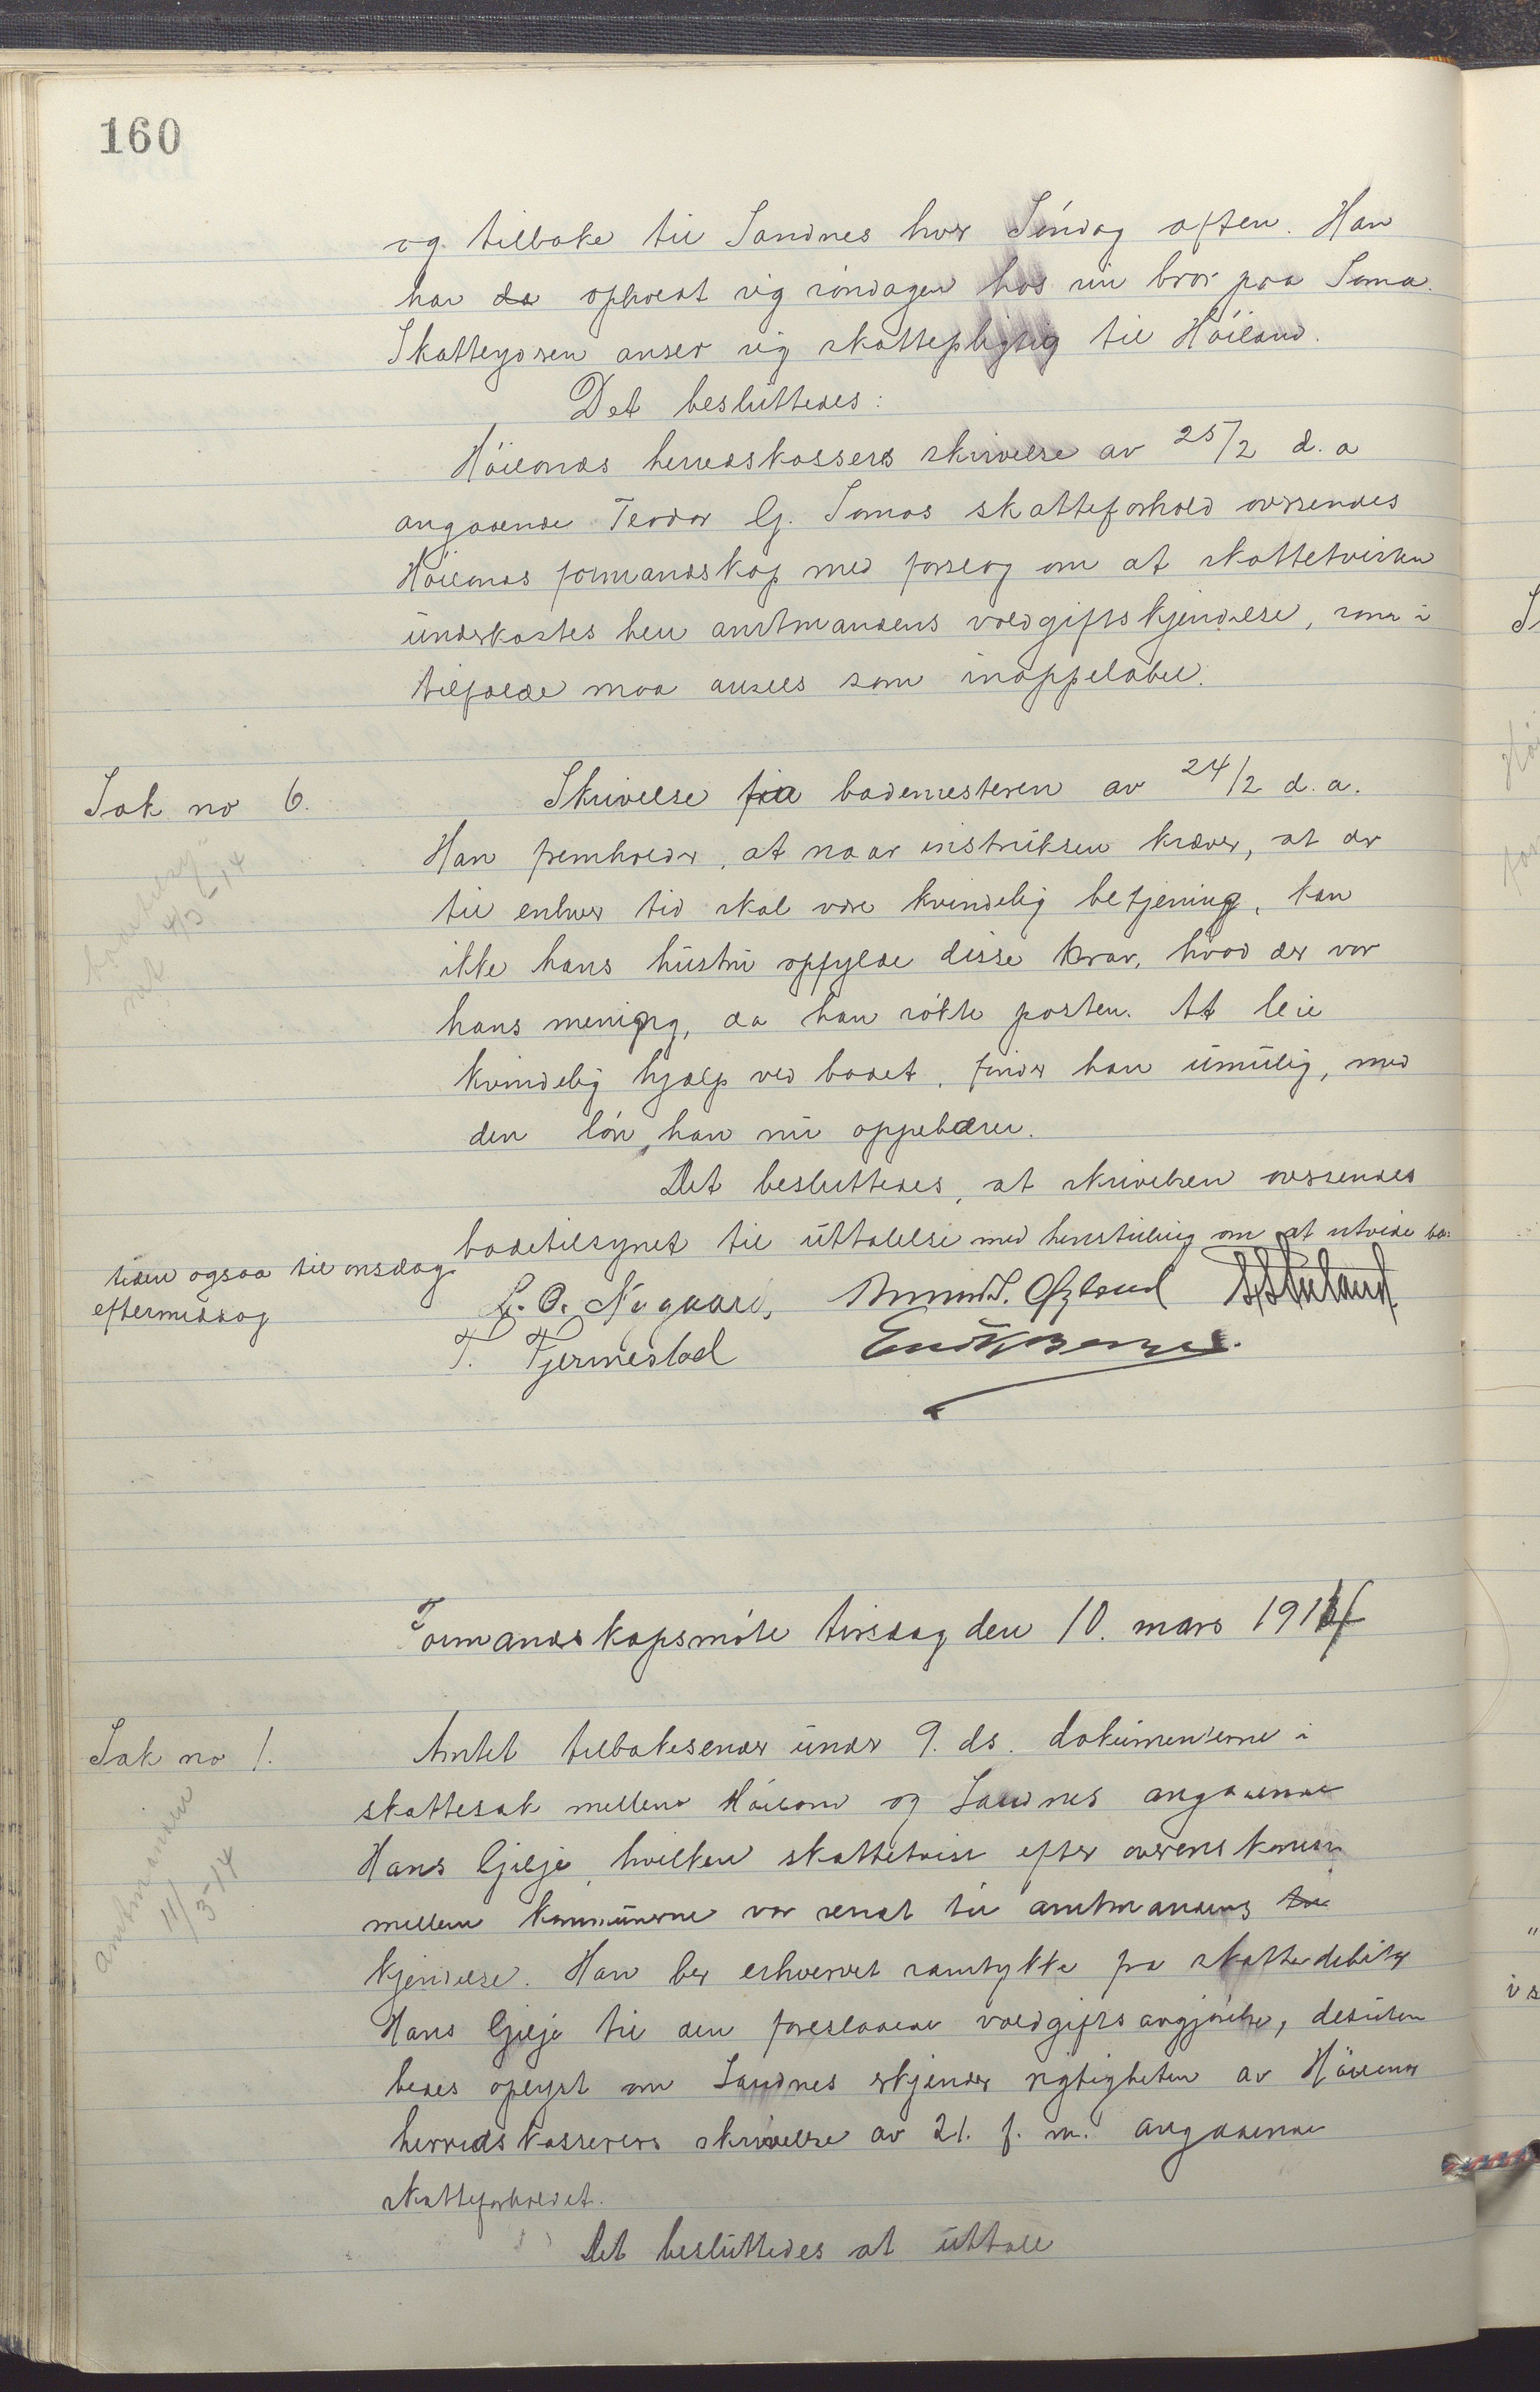 160
og tilbake til Sandnes hver Søndag aften. Han
har da opholdt sig søndagen hos sin bror paa Soma.
Skatteyderen anser sig skattepligtig til Høiland.
Det besluttedes:
Høilands herredskassers skrivelse av 25/2 d. a
angaaende Teodor G. Somas skatteforhold oversendes
Høilands formandskap med forslag om at skattetvisten
underkastes herr amtmandens voldgiftskjendelse, som i
tilfælde maa ansees som inappelabel.
Sak no 6.
Skrivelse fra bademesteren av 24/2 d. a.
Han fremholder, at naar instruksen kræver, at der
til enhver tid skal være kvindelig betjening, kan
ikke hans hustru opfylde disse krav, hvad der var
hans mening, da han søkte posten. At leie
kvindelig hjælp ved badet, finder han umulig, med
den løn, han nu oppebærer.
Det besluttedes, at skrivelsen oversendes
badetilsynet til uttalelse med henstilling om at utvide ba-
tiden ogsaa til onsdag
eftermiddag
L. O. Nygaard,
T. Tjermestad
Formandskapsmøte tirsdag den 10. mars 1914
Sak no 1.
Amtet tilbakesender under 9. ds. dokumenterne i
skattesak mellem Høiland og Sandnes angaaende
Hans Gilje, hvilken skattetvist efter overenskomst
mellem kommunerne var sendt til amtmandens
kjendelse. Han ber erhvervet samtykke fra skattedebitor
Hans Gilje til den foreslaaede voldgiftsavgjørelse, desuten
bedes oplyst om Sandnes erkjender rigtigheten av Høilands
herredskasserers skrivelse av 21. f. m. angaaende
skatteforholdet.
amtmanden
11/3-14
Det besluttedes at uttale